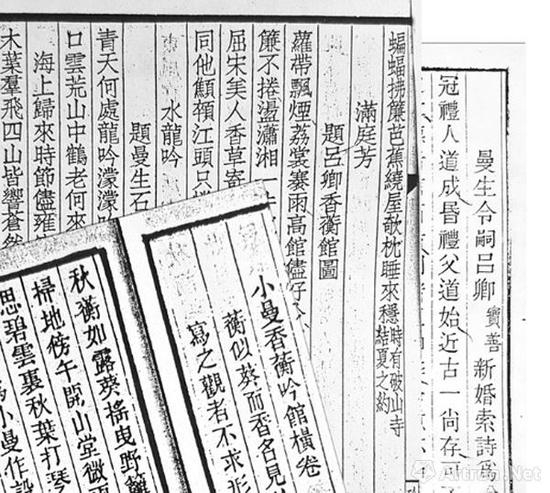 曼生令嗣呂卿寶善新婚索詩爲
冠禮人道成昏禮父道始近古一尚存可
蝙蝠拂簾芭蕉繞屋欹枕睡來穩時有破山寺結夏之約
滿庭芳
題呂卿香蘅館圖
蘿帶飄煙荔裳褰雨高館儘好
簾不捲盪瀟湘一
屈宋美人香草寄
同他顦顇江頭只
水龍吟
題曼生石
青天何處龍吟濛濛
口雲荒山中鶴老何來
海上歸來時節儘雍
木葉羣飛四山皆響蒼然
小曼香蘅吟館橫卷
蘅似葵而香名見
寫之觀者不求形
秋蘅如露葵搖曳野籬
掃地傍午開山堂微
思碧雲裏秋葉打琴
小曼作
Artron.Net